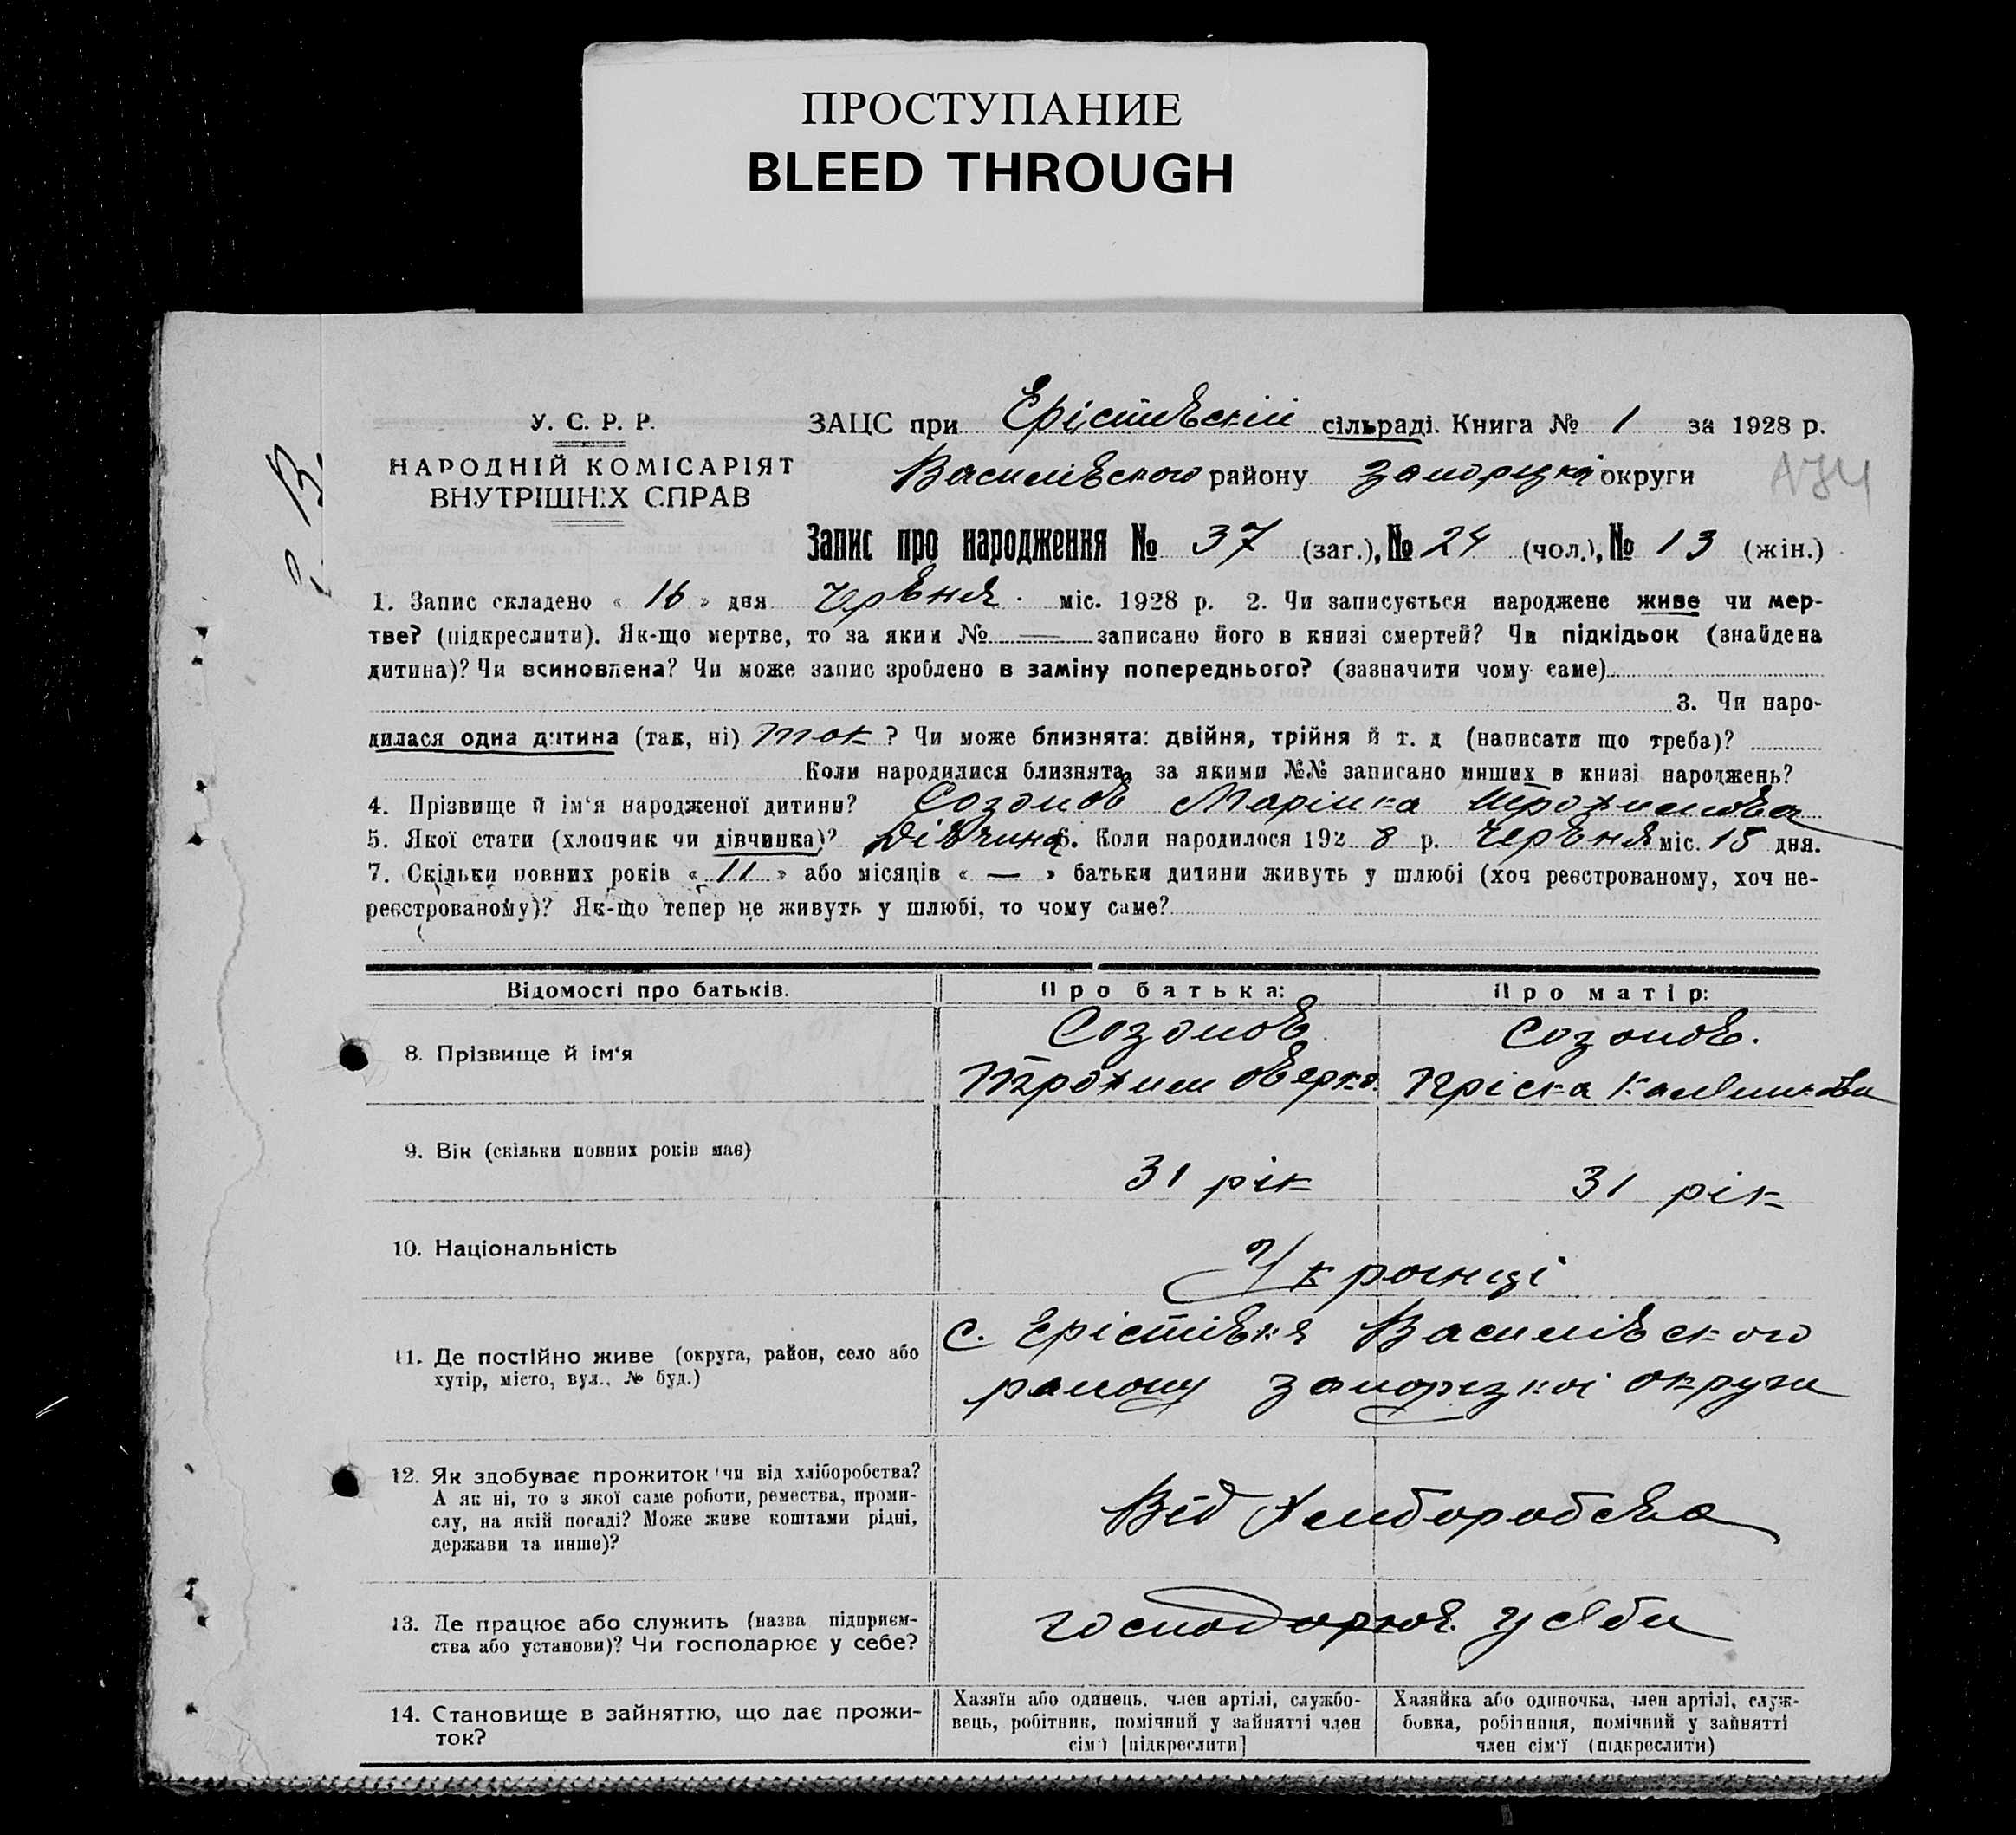 ПРОСТУПАНИЕ
BLEED THROUGH
У. С. Р. Р.
НАРОДНІЙ КОМІСАРІЯТ
ВНУТРІШНІХ СПРАВ
ЗАЦС при Ерістівскій сільраді. Книга № 1 за 1928 р.
Василівского району округи
Запис про народження № 37 (заг.), № 24 (чол.), № 13 (жін.)
1. Запис складено « 16 » дня Червня міс. 1928 р. 2. Чи записується народжене живе чи мер-
тве? (підкреслити). Як-що мертве, то за яким № — записано його в книзі смертей? Чи підкідьок (знайдена
дитина)? Чи всиновлена? Чи може запис зроблено в заміну попереднього? (зазначити чому саме)
3. Чи наро-
дилася одна дитина (так, ні) так ? Чи може близнята: двійня, трійня й т. д (написати що треба)?
Коли народилися близнята, за якими №№ записано инших в книзі народжень?
4. Прізвище й ім‘я народженої дитини? Созонов Марінка Трохимовна
5. Якої стати (хлопчик чи дівчинка)? Дівчина 6. Коли народилося 1928 р. Червня міс. 15 дня.
7. Скільки повних років « 11 » або місяців « — » батьки дитини живуть у шлюбі (хоч реєстрованому, хоч не-
реєстрованому)? Як-що тепер не живуть у шлюбі, то чому саме?
Відомості про батьків.
Про батька:
Про матір:
8. Прізвище й ім‘я
Созонов
Трохим
Созонов.
Пріска
9. Вік (скільки повних років має)
31 рік
31 рік
10. Національність
Українці
11. Де постійно живе (округа, район, село або
хутір, місто, вул., № буд.)
с. Ерістівка Василівского
району округи
12. Як здобуває прожиток чи від хліборобства?
А як ні, то з якої саме роботи, ремества, проми-
слу, на якій посаді? Може живе коштами рідні,
держави та инше)?
Від
13. Де працює або служить (назва підприєм-
ства або установи)? Чи господарює у себе?
господорює у себи
14. Становище в зайняттю, що дає прожи-
ток?
Хазяїн або одинець, член артілі, службо-
вець, робітник, помічний у зайнятті член
сім‘ї [підкреслити]
Хазяйка або одиночка, член артілі, служ-
бовка, робітниця, помічний у зайнятті
член сім‘ї (підкреслити)